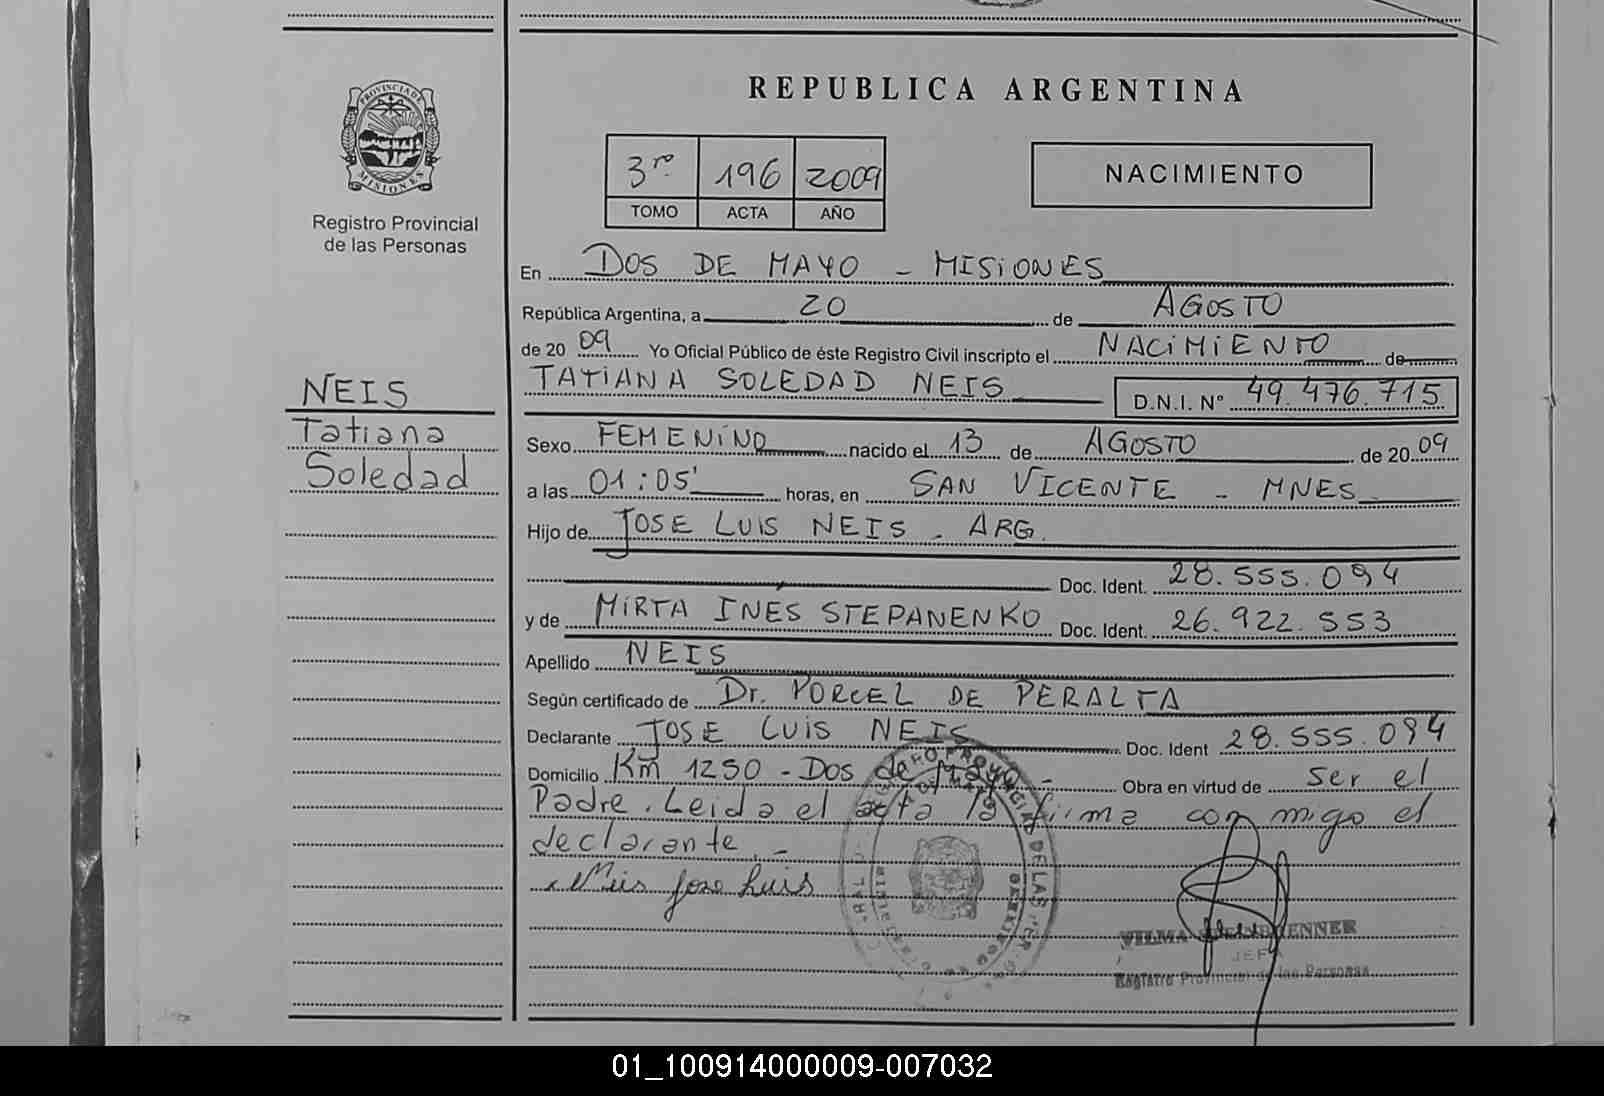 REPUBLICA ARGENTINA
PROVINCIA DE
MISIONES
Registro Provincial
de las Personas
3ro. 196 2009
TOMO ACTA AÑO
NACIMIENTO
En DOS DE MAYO - MISIONES
República Argentina, a 20 de AGOSTO
de 20 09 Yo Oficial Público de éste Registro Civil inscripto el NACIMIENTO de
TATIANA SOLEDAD NEIS D.N.I. N° 49.476.715.
NEIS
Tatiana
Soledad
Sexo FEMENINO nacido el 13 de AGOSTO de 20 09
a las 01:05' horas, en SAN VICENTE - MNES
Hijo de JOSE LUIS NEIS - ARG.
Doc. Ident. 28.555.094
y de MIRTA INES STEPANENKO Doc. Ident. 26.922.553
Apellido NEIS
Según certificado de Dr. PORCEL DE PERALTA
Declarante JOSE LUIS NEIS Doc. Ident 28.555.094
Domicilio Km 1250 - Dos de Mayo - Obra en virtud de ser el
Padre. Leida el acta la firma con migo el
declarante. -
Neis Jose Luis
VILMA
JEFA
Registro Provincial de las Personas
01_100914000009-007032